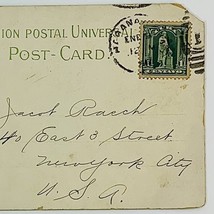 ION POSTAL UNIVERSAL
POST-CARD.
HABANA
ENE
CENTAVO
Jacob Raech
40 East 3 Street
New York City
U. S. A.